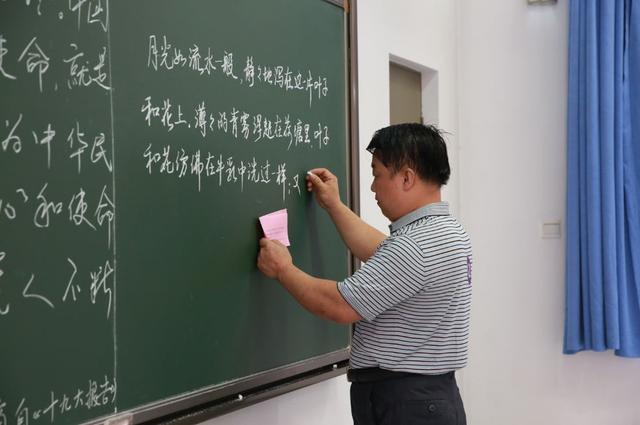 中国
使命,就是
为中华民
和使命
人不断
自《十九大报告》
月光如流水一般,静々地泻在这一片叶子
和花上。薄々的青雾浮起在荷塘里。叶子
和花仿佛在牛乳中洗过一样;又